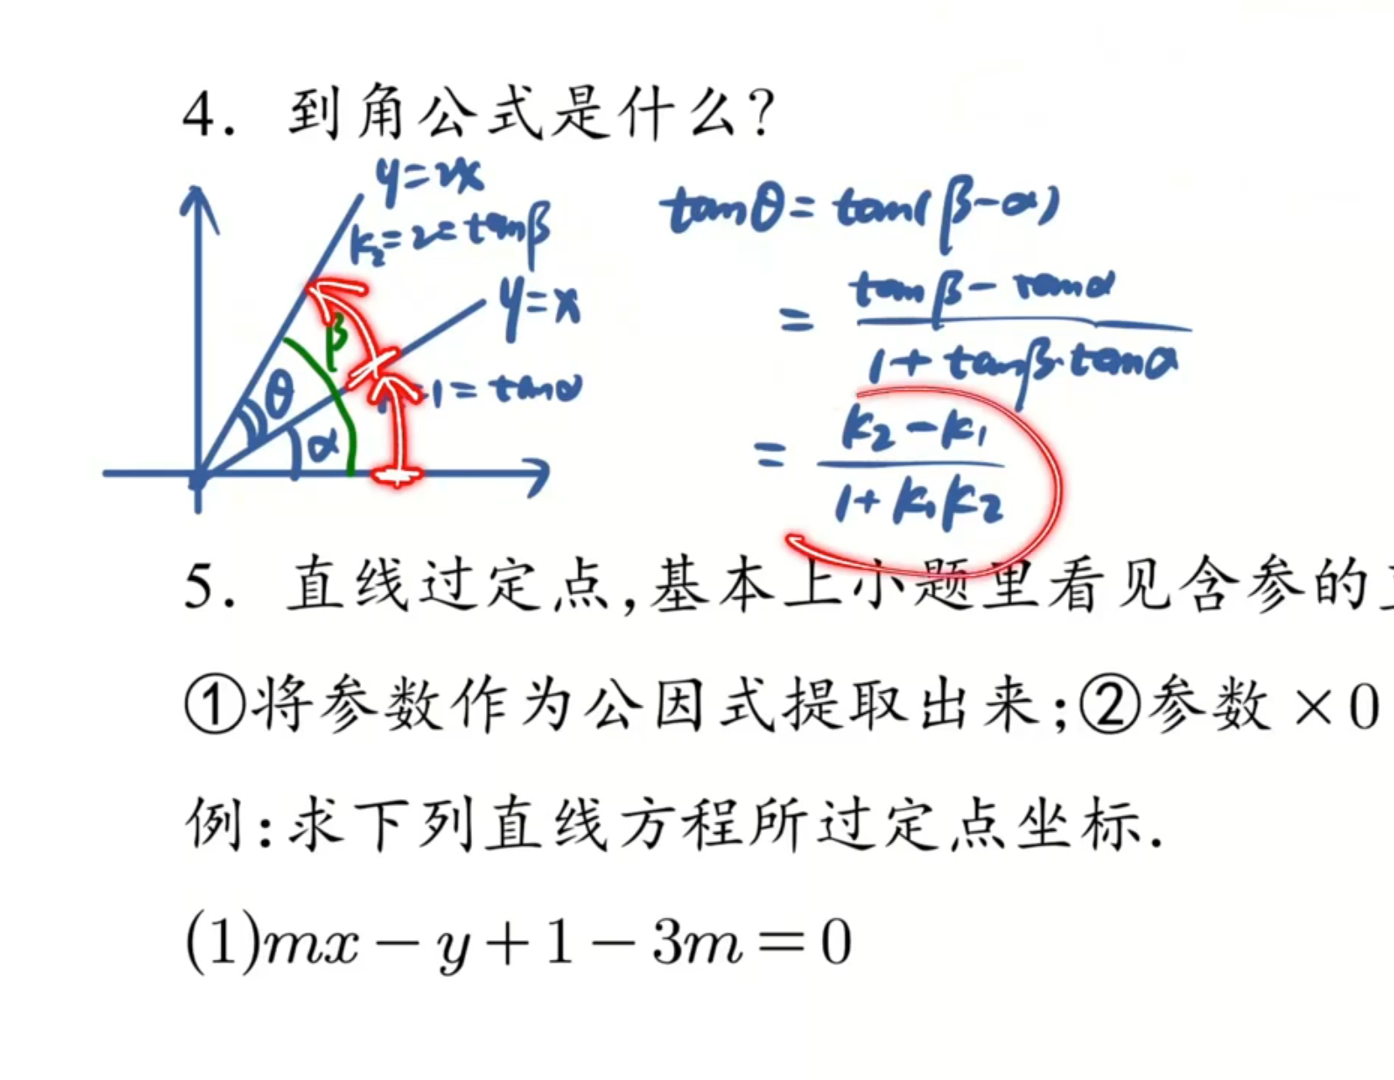 4. 到角公式是什么?
y=2x
k₂=2=tanβ
y=x
=1=tanα
β
θ
α
tanθ=tan(β-α)
= (tanβ-tanα)/(1+tanβ·tanα)
= (k₂-k₁)/(1+k₁k₂)
5. 直线过定点,基本上小题里看见含参的
①将参数作为公因式提取出来;②参数×0
例:求下列直线方程所过定点坐标.
(1)mx-y+1-3m=0